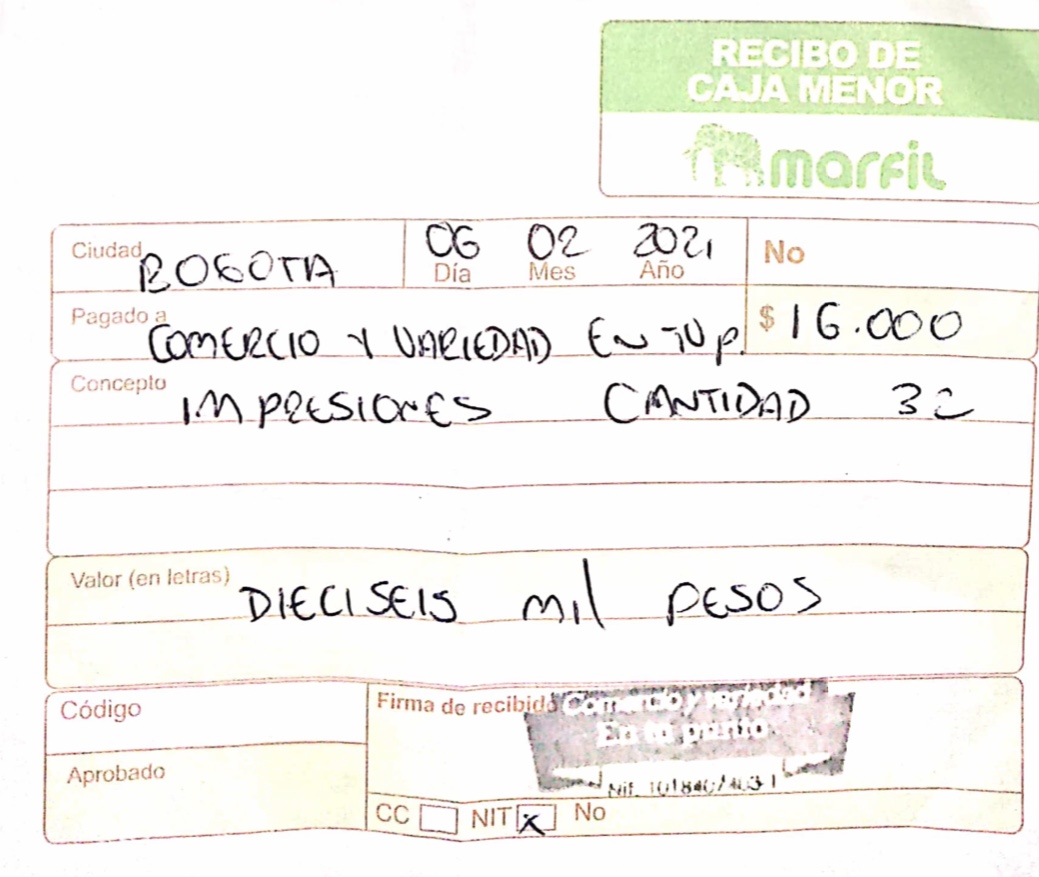 RECIBO DE
CAJA MENOR
marfil
Ciudad BOGOTA 06 Día 02 Mes 2021 Año No
Pagado a COMERCIO Y VARIEDAD EN TU P. $ 16.000
Concepto IMPRESIONES CANTIDAD 32
Valor (en letras) DIECISEIS mil PESOS
Código
Firma de recibido Comercio y variedad
En tu punto
Aprobado
Nit.
CC NIT x No